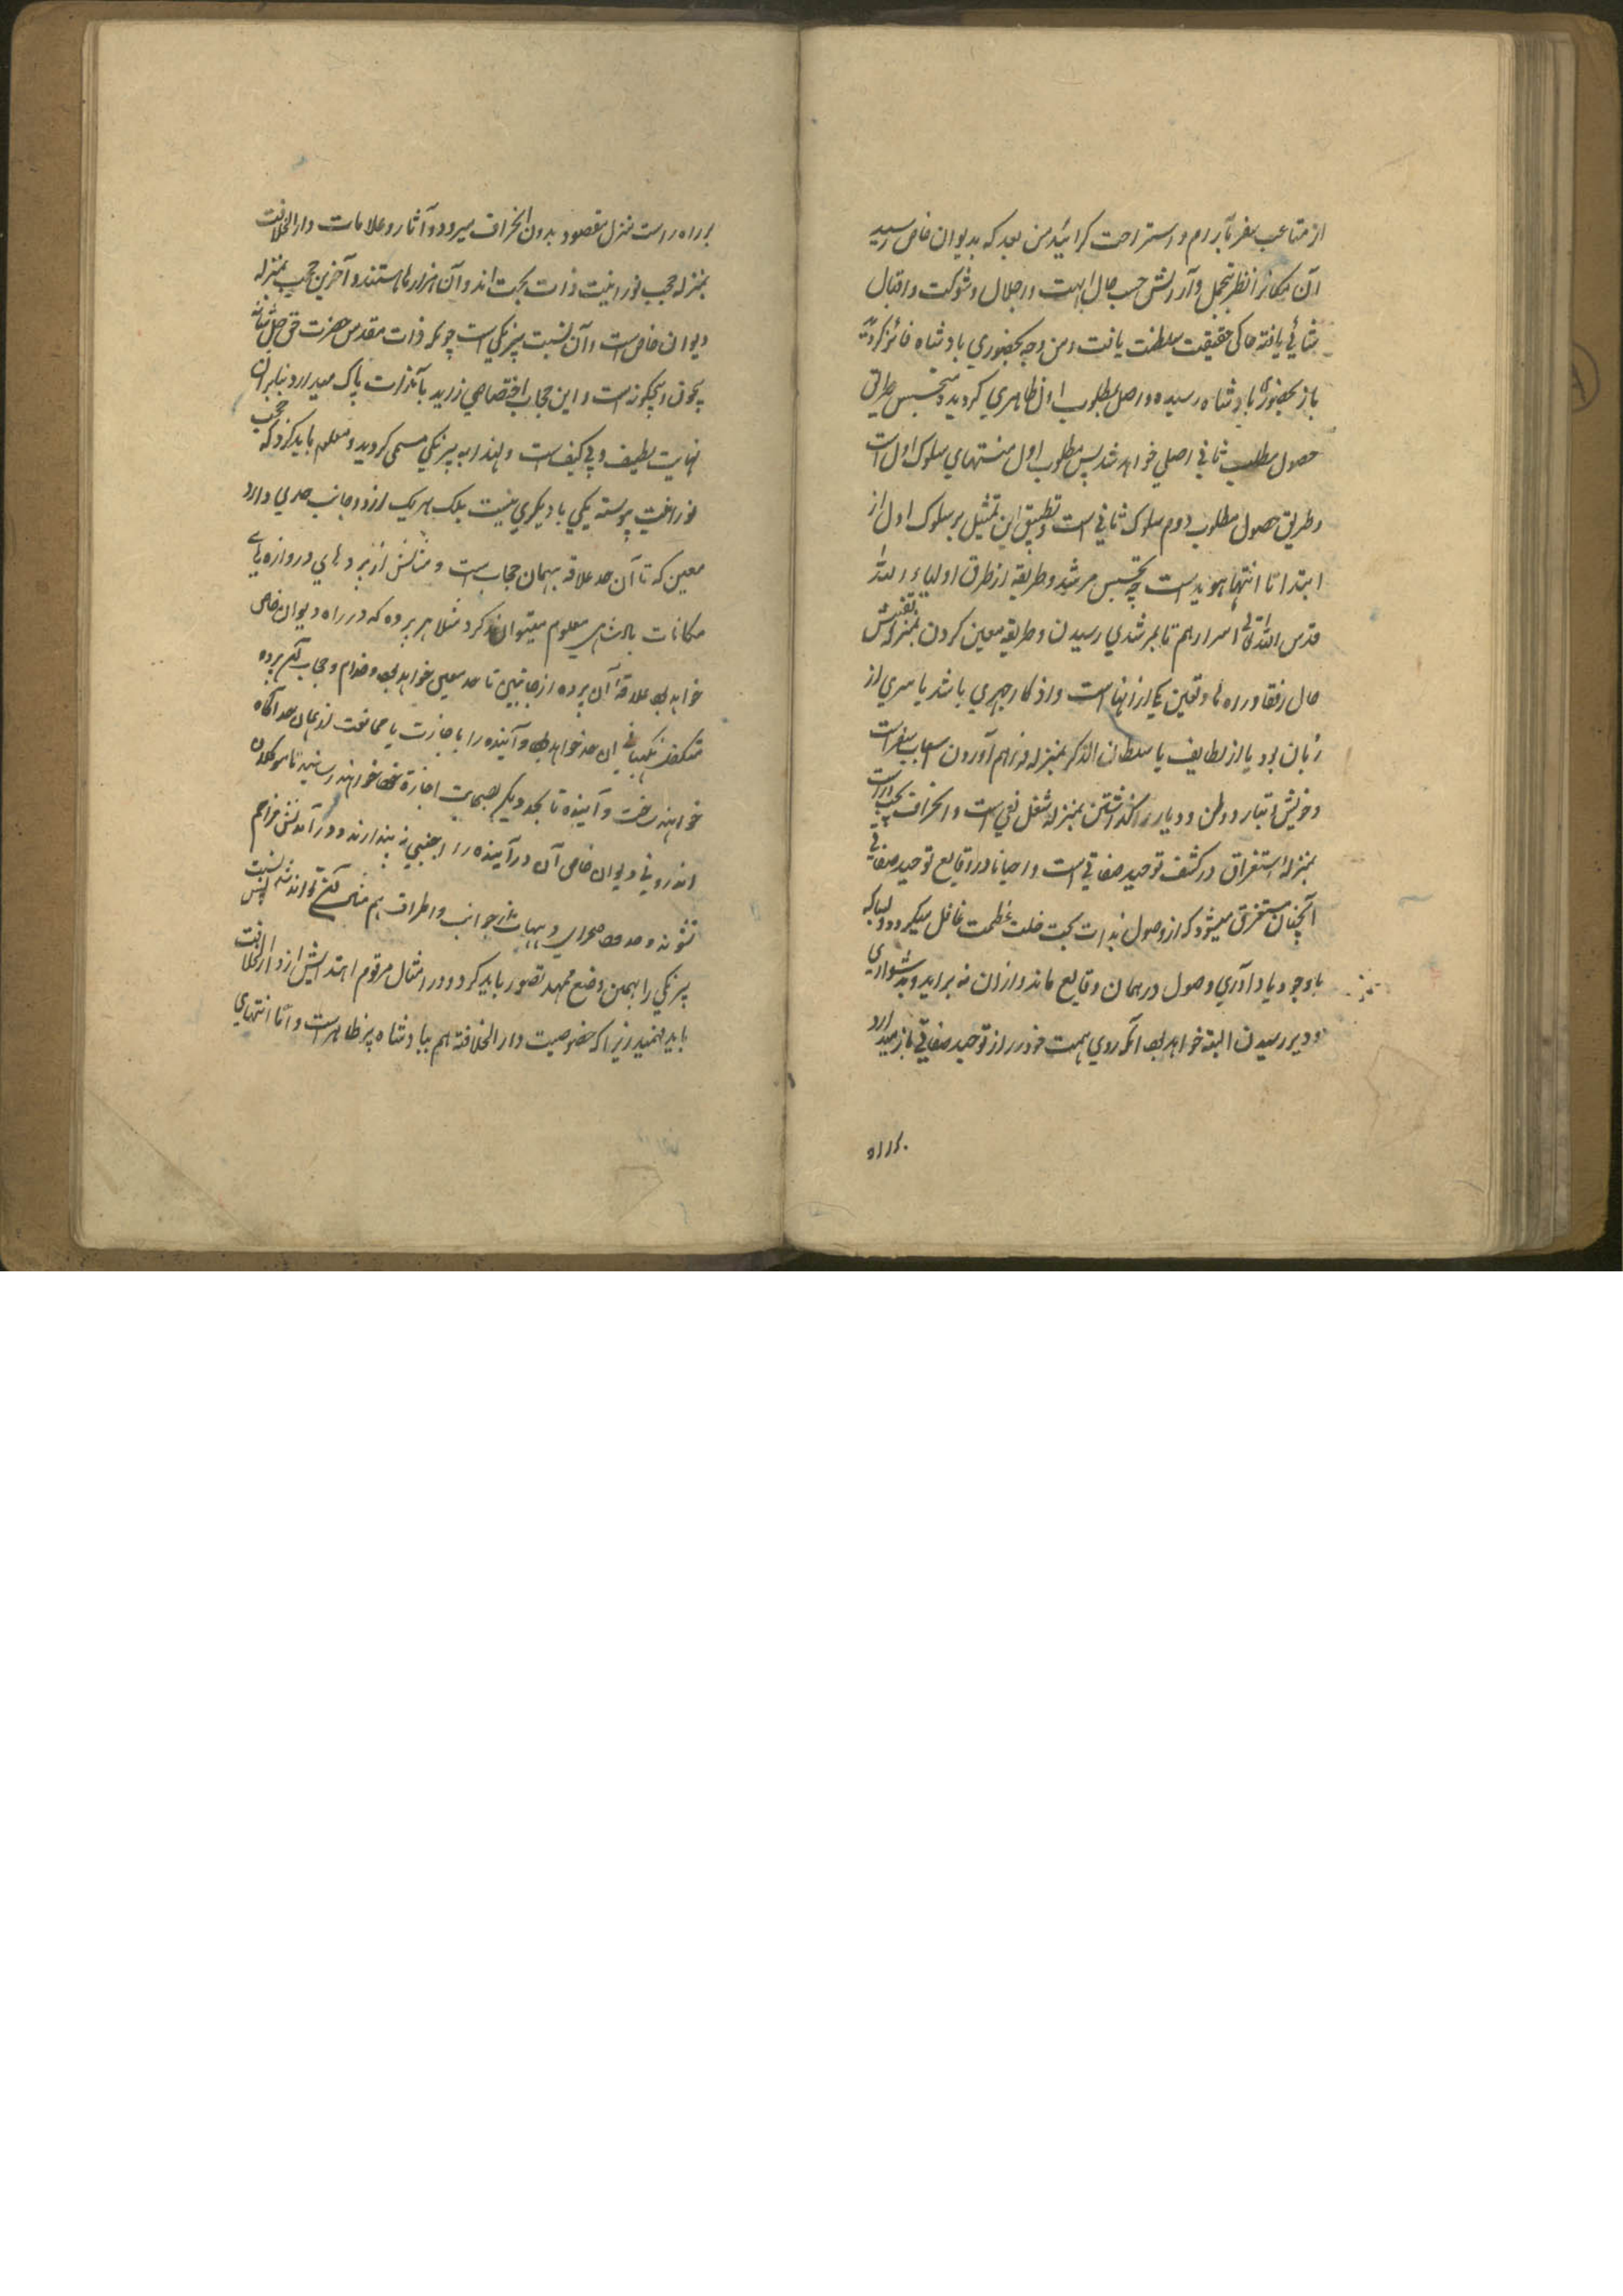 از متاعب سفر بآرام و استراحت گرائید من بعد که بدیوان خاص رسید
آن مکانرا نظر بتجمل و آرایش حسب حال ابهت و اجلال و شوکت و اقبال
یافته حاکی حقیقت سلطنت یافت و من وجه بحضوری بادشاه فائز کردید
باز بحضوری بادشاه رسیده واصل مطلوب اول ظاهری کردید و تجسس طریق
حصول مطلب ثانی اصلی خواهد شد پس مطلوب اول منتهای سلوک اول است
و طریق حصول مطلوب دوم سلوک ثانی است و تطبیق این تمثیل بر سلوک اول از
ابتدا تا انتها هویداست چه تجسس مرشد و طریقه از طرق اولیاء الله
قدس الله تعالی اسرارهم تا بمرشدی رسیدن و طریقه معین کردن بمنزله تفتیش
حال رفقا و راه ها و تعین یکی از انها است و اذکار جهری باشد یا سری از
زبان بود یا از لطایف یا سلطان الذکر بمنزله فراهم آوردن اسباب سفر است
و خویش و تبار و وطن و دیار را گذاشتن بمنزله شغل نفی است و انحراف
بمنزله استغراق در کشف توحید صفاتی است و احیانا در وقایع توحید صفاتی
آنچنان مستغرق میشود که از وصول بذات بحت غافل میکردد و بسا که
باوجود یادآوری وصول در همان وقایع ماند و ازان نه براید و بدشواری
و دیر رسیدن البته خواهد بود آنکه روی همت خود را از توحید صفاتی باز میدارد
براه راست منزل مقصود بدون انحراف میرود و آثار و علامات دار الخلافت
بمنزله حجب نورانیت ذات بحت اند و آن هزارها هستند و آخرین حجب بمنزله
دیوان خاص است و آن نسبت بیرنگی است چونکه ذات مقدس حضرت حق جل شانه
بیچون و بیچگونه است و این حجاب اختصاصی زاید بآنذات پاک میدارد بنابران
نهایت لطیف و بی کیف است و لهذا به بیرنگی مسمی کردید و معلوم باید کرد که حجب
نورانیت پیوسته یکی با دیگری نیست بلکه هر یک از دو جانب حدی دارد
معین که تا آن حد علاقه بهمان حجاب است و مثالش از پردهای دروازه های
مکانات بادشاهی معلوم میتوان کرد مثلا هر پرده که در راه دیوان خاص
خواهد بود علاقه آن پرده از جانبین تا حد معین خواهد بود و خدام و حجاب آن پرده
متکفل نگهبانی آن حد خواهد بود و آینده را باجازت یا ممانعت از همان حد آگاه
خواهند ساخت و آینده تا بحد دیگر بحمایت اجازه خود خواهند رسانید تا موکلان
اندرونی دیوان خاص آن درآینده را اجنبی نه پندارند و درآمدنش مزاحم
نشوند و جوانب و اطراف هم
بیرنگی را بهمین وضع ممهد تصور باید کرد و در مثال مرقوم ابتدایش از دار الخلافت
باید فهمید زیرا که خصوصیت دار الخلافة هم ببادشاه پر ظاهر است و اما انتهای